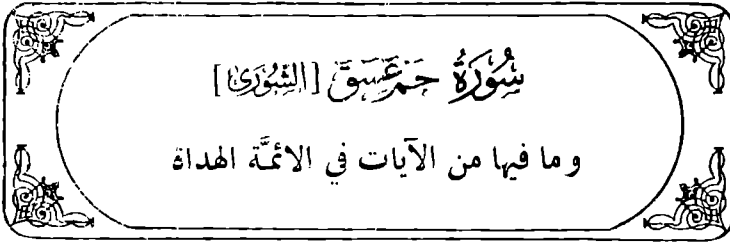 سُورَةُ حمعسق [الشورى]
و ما فيها من الآيات في الائمَّة الهداة